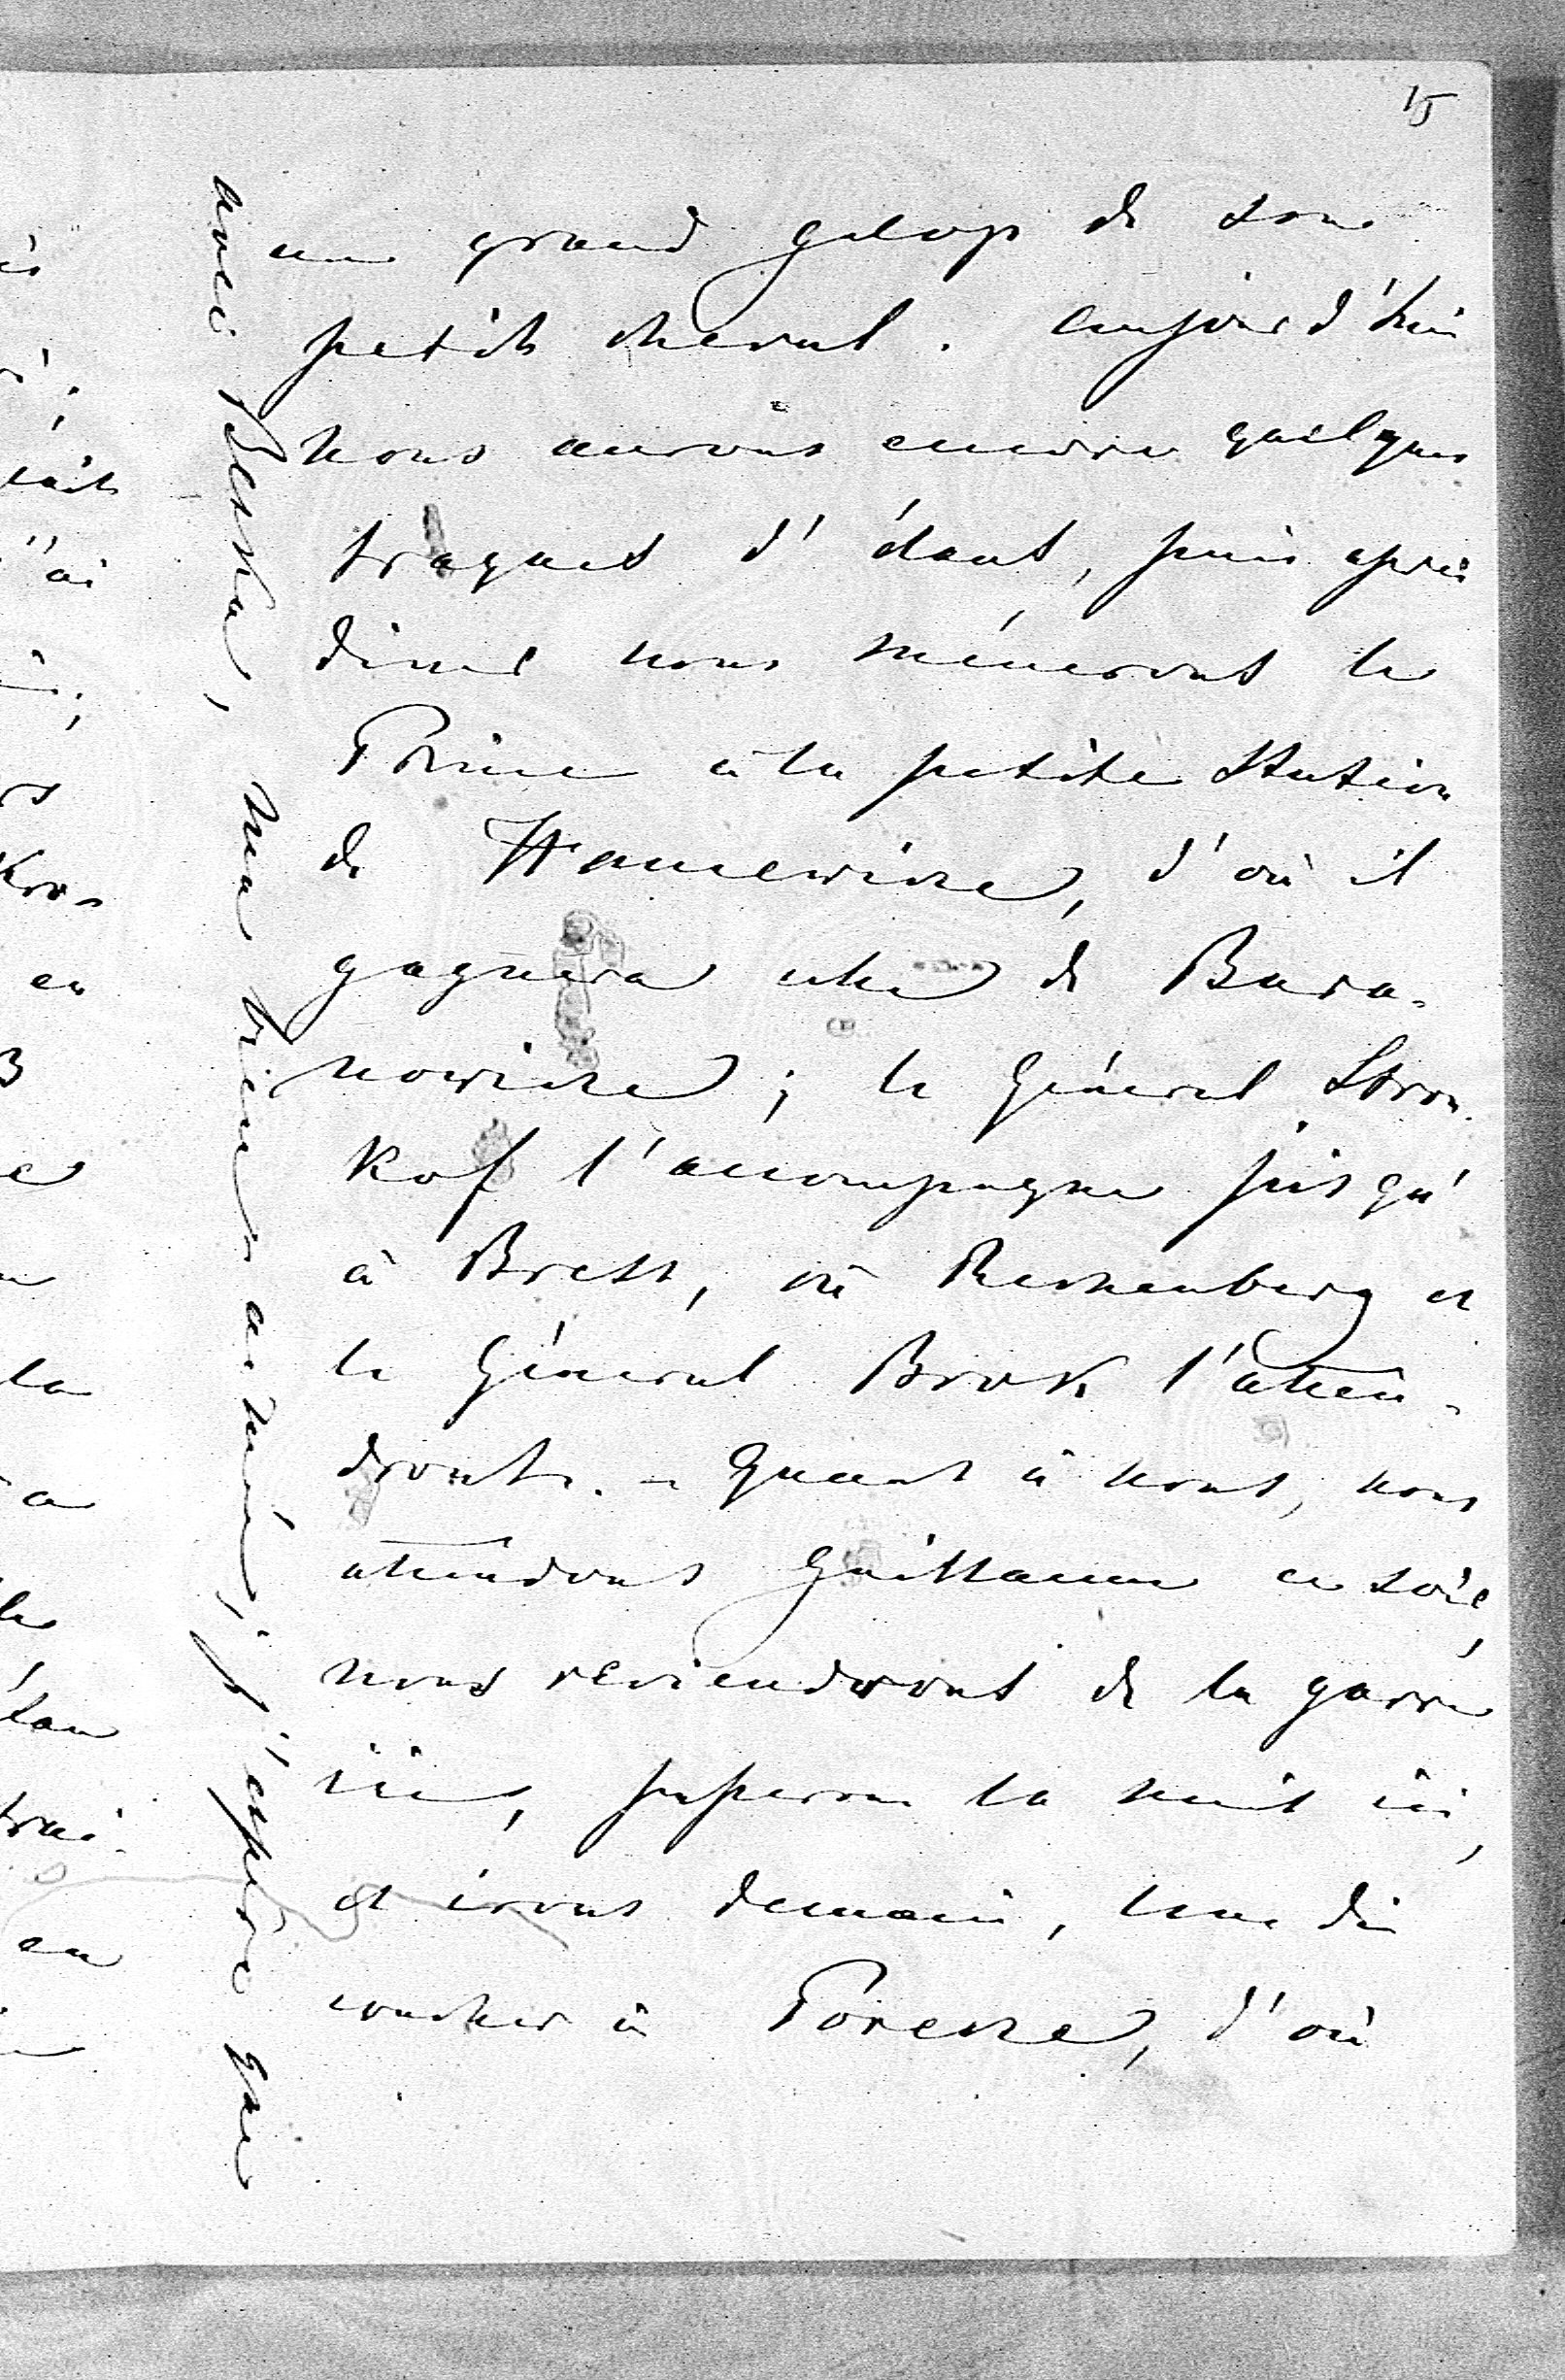 15
au grand galop de son
petit cheval. Aujourd'hui
nous aurons encore quelques
traques d'élant, puis après
diner nous ménerons le
Prince à la petite Station
de Hancewicze, d'où il
gagnera celle de Bara-
nowicze; le Général Stru-
kof l'accompagne jusqu'
à Brest, où Rechenberg et
le Général Brok l'atten-
dront. - Quant à nous, nous
attendons Guillaume ce soir,
nous reviendrons de la garre
ici, passerons la nuit ici,
et irons demain, lundi
coucher à Porecze, d'où
avec Betka, ma bien aimée, j'espère que